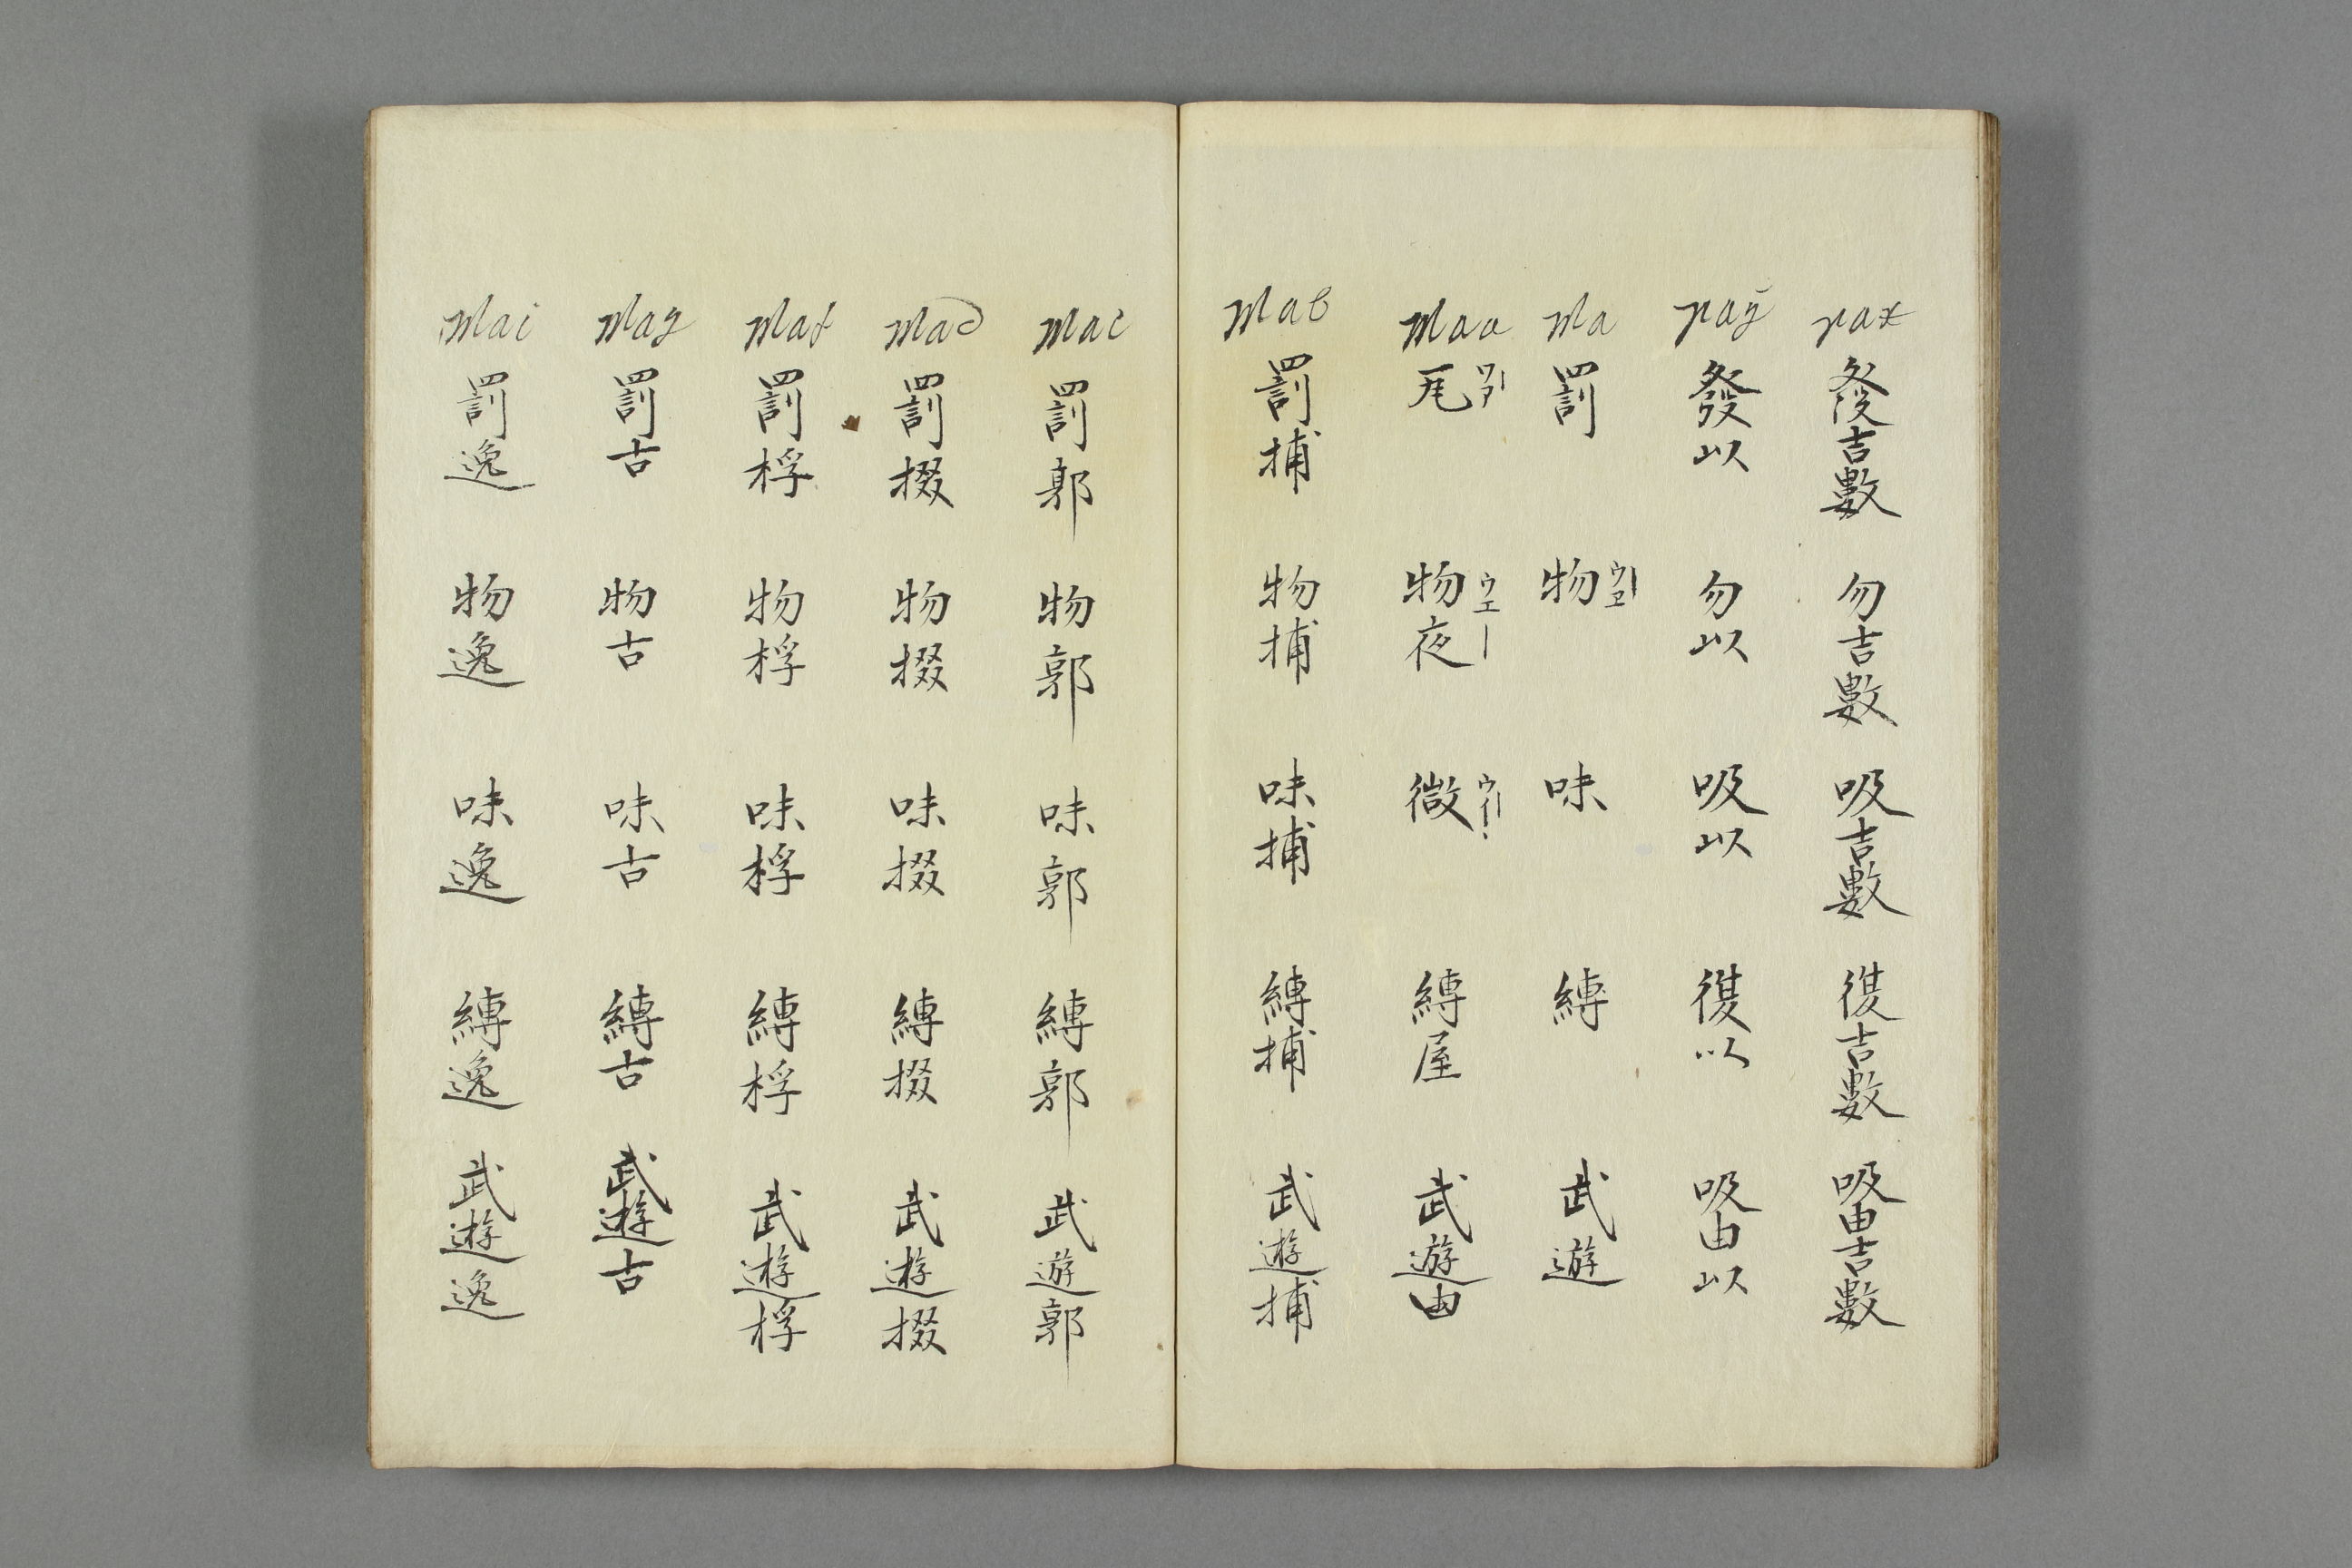 pax 發吉數 勿吉數 吸吉數 復吉數 吸由吉數
paÿ 發以 勿以 吸以 復以 吸由以
ma 罰 物 味 縛 武遊
maa 物夜 微 縛屋 武遊由
mab 罰捕 物捕 味捕 縛捕 武遊捕
mac 罰郭 物郭 味郭 縛郭 武遊郭
mad 罰掇 物掇 味掇 縛掇 武遊掇
maf 罰桴 物桴 味桴 縛桴 武遊桴
mag 罰古 物古 味古 縛古 武遊古
mai 罰逸 物逸 味逸 縛逸 武遊逸